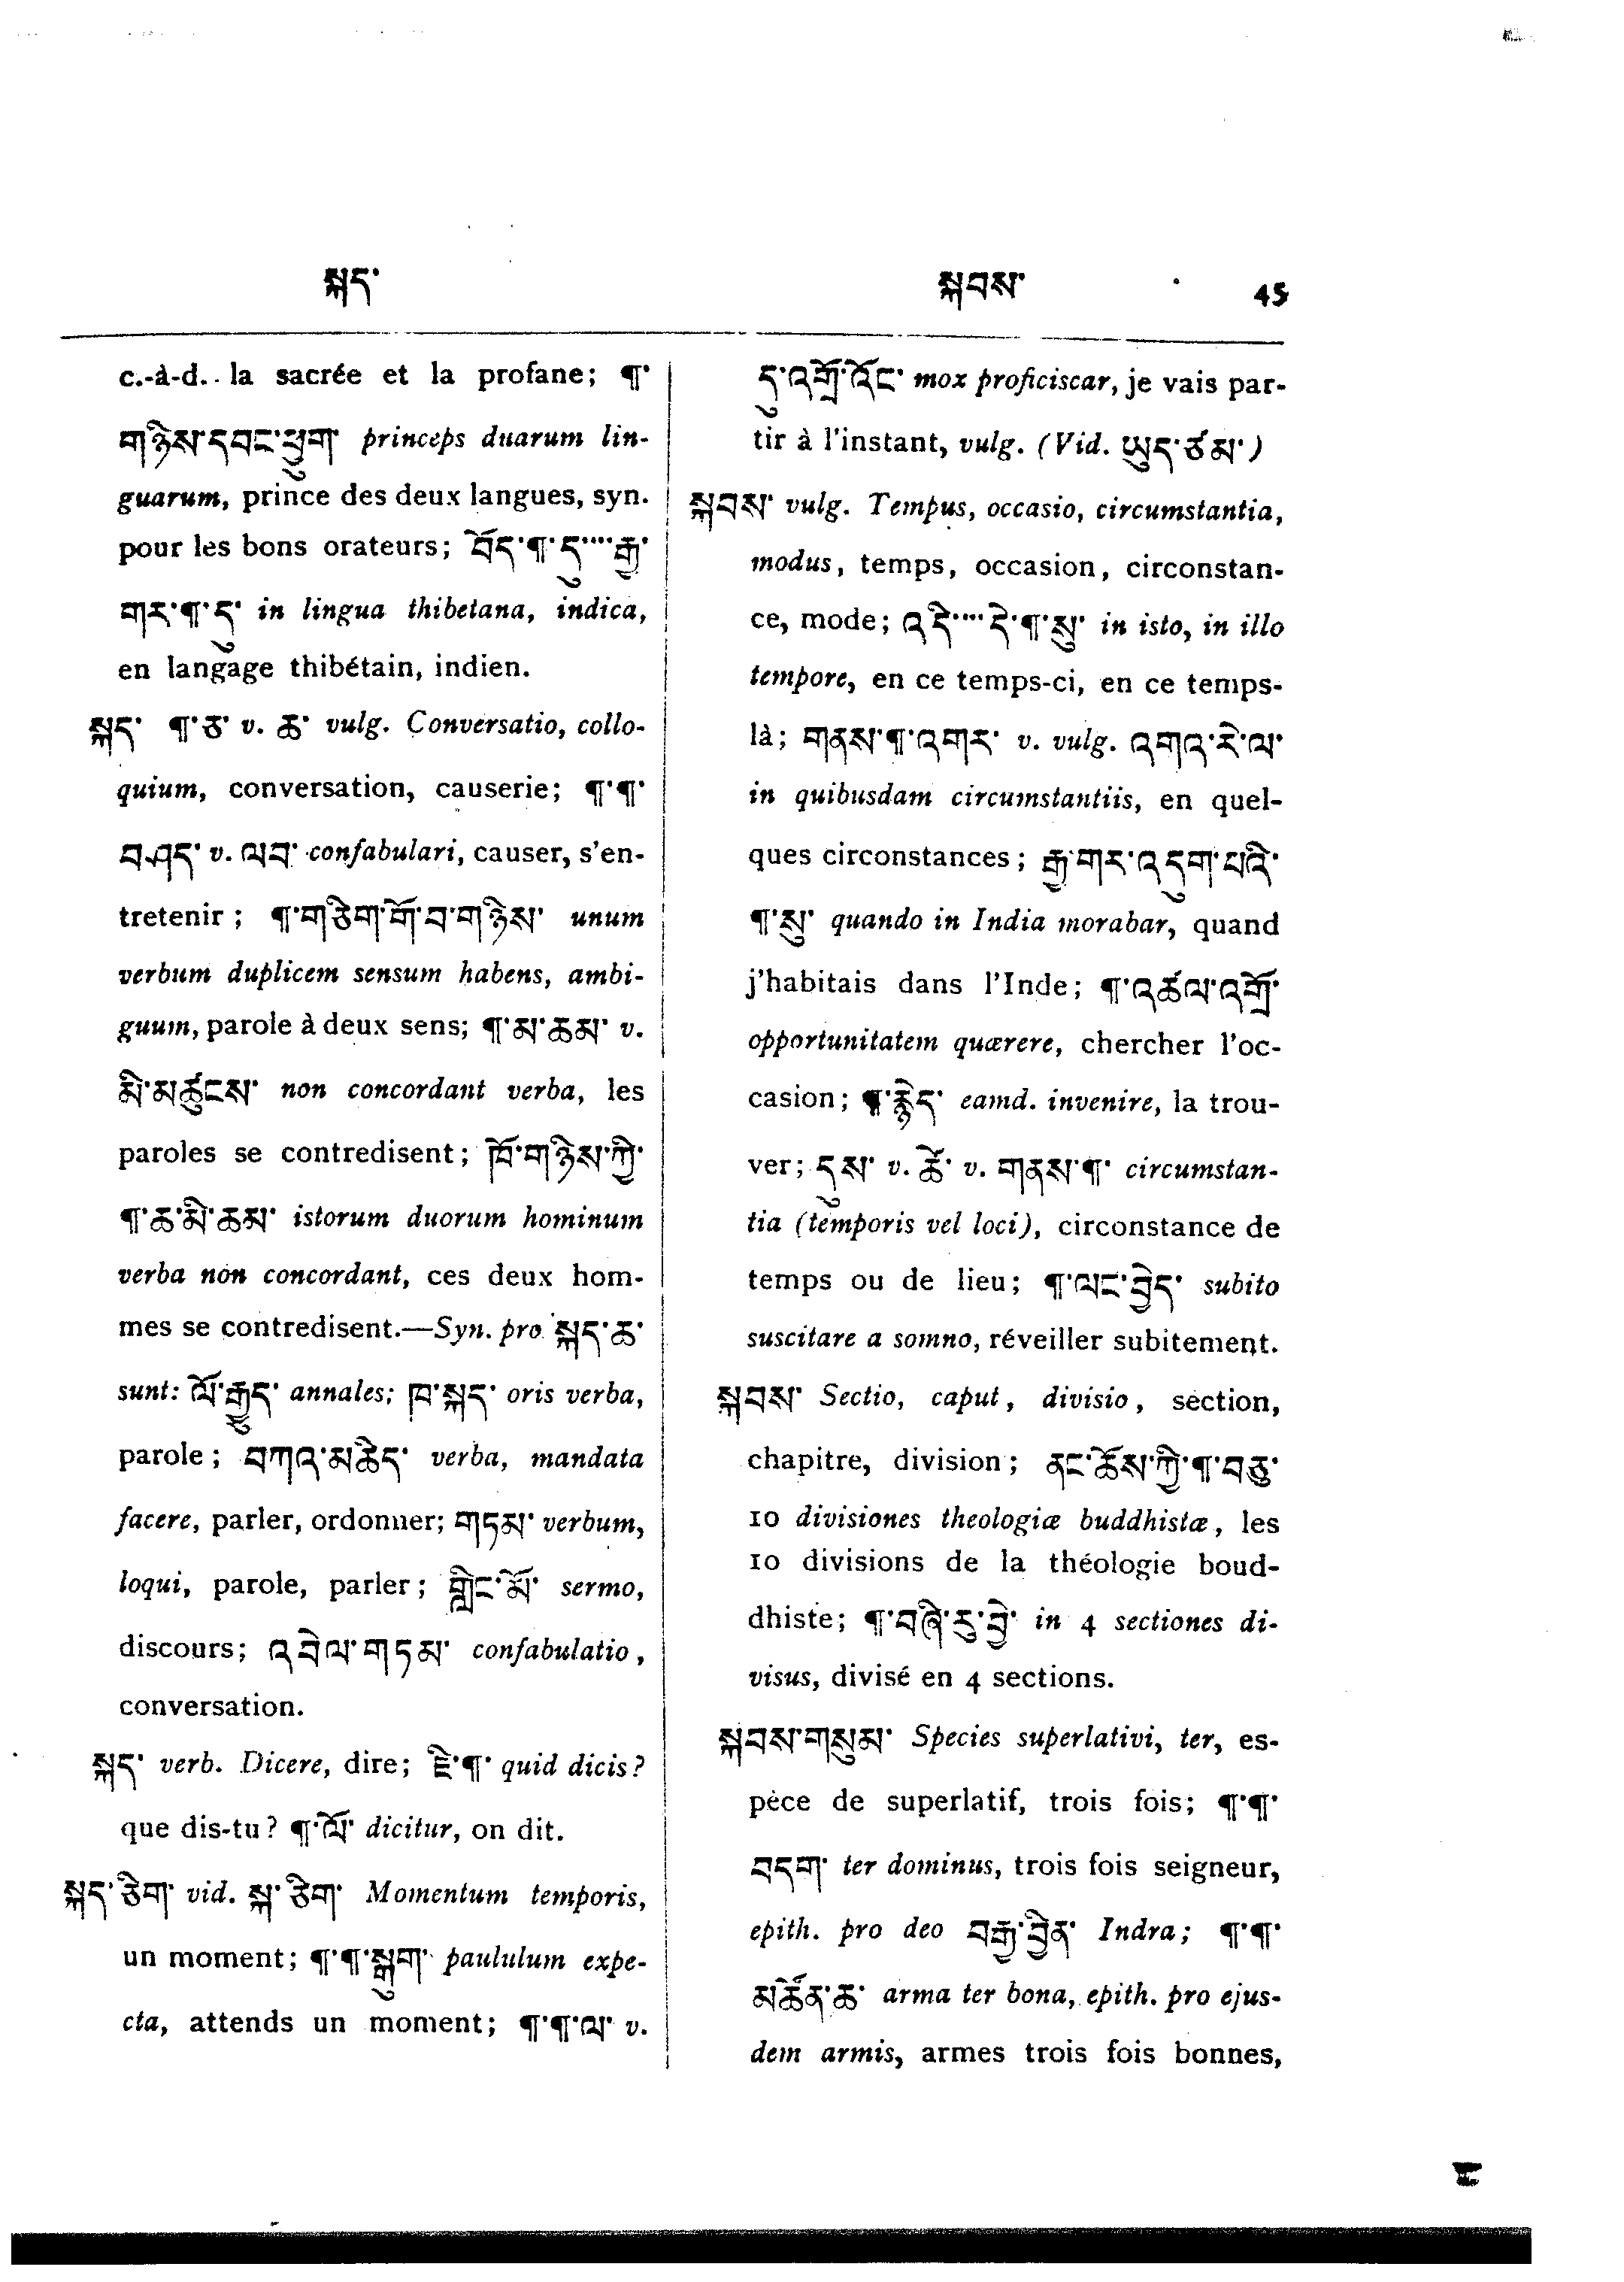 སྐད་
སྐབས་ 45
c.-à-d. la sacrée et la profane; ¶་
གཉིས་དབང་ཕྱུག་ princeps duarum lin-
guarum, prince des deux langues, syn.
pour les bons orateurs; བོད་¶་དུ་....རྒྱ་
གར་¶་དུ་ in lingua thibetana, indica,
en langage thibétain, indien.
སྐད་ ¶་ཅ་ v. ཆ་ vulg. Conversatio, collo-
quium, conversation, causerie; ¶་¶་
བཤད་ v. ལབ་ confabulari, causer, s'en-
tretenir; ¶་གཅིག་གོ་བ་གཉིས་ unum
verbum duplicem sensum habens, ambi-
guum, parole à deux sens; ¶་མ་ཆམ་ v.
མི་མཚུངས་ non concordant verba, les
paroles se contredisent; ཁོ་གཉིས་ཀྱི་
¶་ཆ་མི་ཆམ་ istorum duorum hominum
verba non concordant, ces deux hom-
mes se contredisent.—Syn. pro སྐད་ཆ་
sunt: ལོ་རྒྱུད་ annales; ཁ་སྐད་ oris verba,
parole; བཀའ་མཆིད་ verba, mandata
facere, parler, ordonner; གཏམ་ verbum,
loqui, parole, parler; གླིང་མོ་ sermo,
discours; འབེལ་གཏམ་ confabulatio,
conversation.
སྐད་ verb. Dicere, dire; ཇི་¶་ quid dicis?
que dis-tu? ¶་ལོ་ dicitur, on dit.
སྐད་ཅིག་ vid. སྐ་ཅིག་ Momentum temporis,
un moment; ¶་¶་སྒུག་ paululum expe-
cta, attends un moment; ¶་¶་ལ་ v.
དུ་འགྲོ་འོང་ mox proficiscar, je vais par-
tir à l'instant, vulg. (Vid. ཡུད་ཙམ་)
སྐབས་ vulg. Tempus, occasio, circumstantia,
modus, temps, occasion, circonstan-
ce, mode; འདི་....དེ་¶་སུ་ in isto, in illo
tempore, en ce temps-ci, en ce temps-
là; གནས་¶་འགར་ v. vulg. འགའ་རེ་ལ་
in quibusdam circumstantiis, en quel-
ques circonstances; རྒྱ་གར་འདུག་པའི་
¶་སུ་ quando in India morabar, quand
j'habitais dans l'Inde; ¶་འཚལ་འགྲོ་
opportunitatem quærere, chercher l'oc-
casion; ¶་རྙེད་ eamd. invenire, la trou-
ver; དུས་ v. ཚེ་ v. གནས་¶་ circumstan-
tia (temporis vel loci), circonstance de
temps ou de lieu; ¶་ལང་བྱེད་ subito
suscitare a somno, réveiller subitement.
སྐབས་ Sectio, caput, divisio, section,
chapitre, division; ནང་ཆོས་ཀྱི་¶་བཅུ་
10 divisiones theologiæ buddhistæ, les
10 divisions de la théologie boud-
dhiste; ¶་བཞི་རུ་བྱེ་ in 4 sectiones di-
visus, divisé en 4 sections.
སྐབས་གསུམ་ Species superlativi, ter, es-
pèce de superlatif, trois fois; ¶་¶་
བདག་ ter dominus, trois fois seigneur,
epith. pro deo བརྒྱ་བྱིན་ Indra; ¶་¶་
མཚོན་ཆ་ arma ter bona, epith. pro ejus-
dem armis, armes trois fois bonnes,